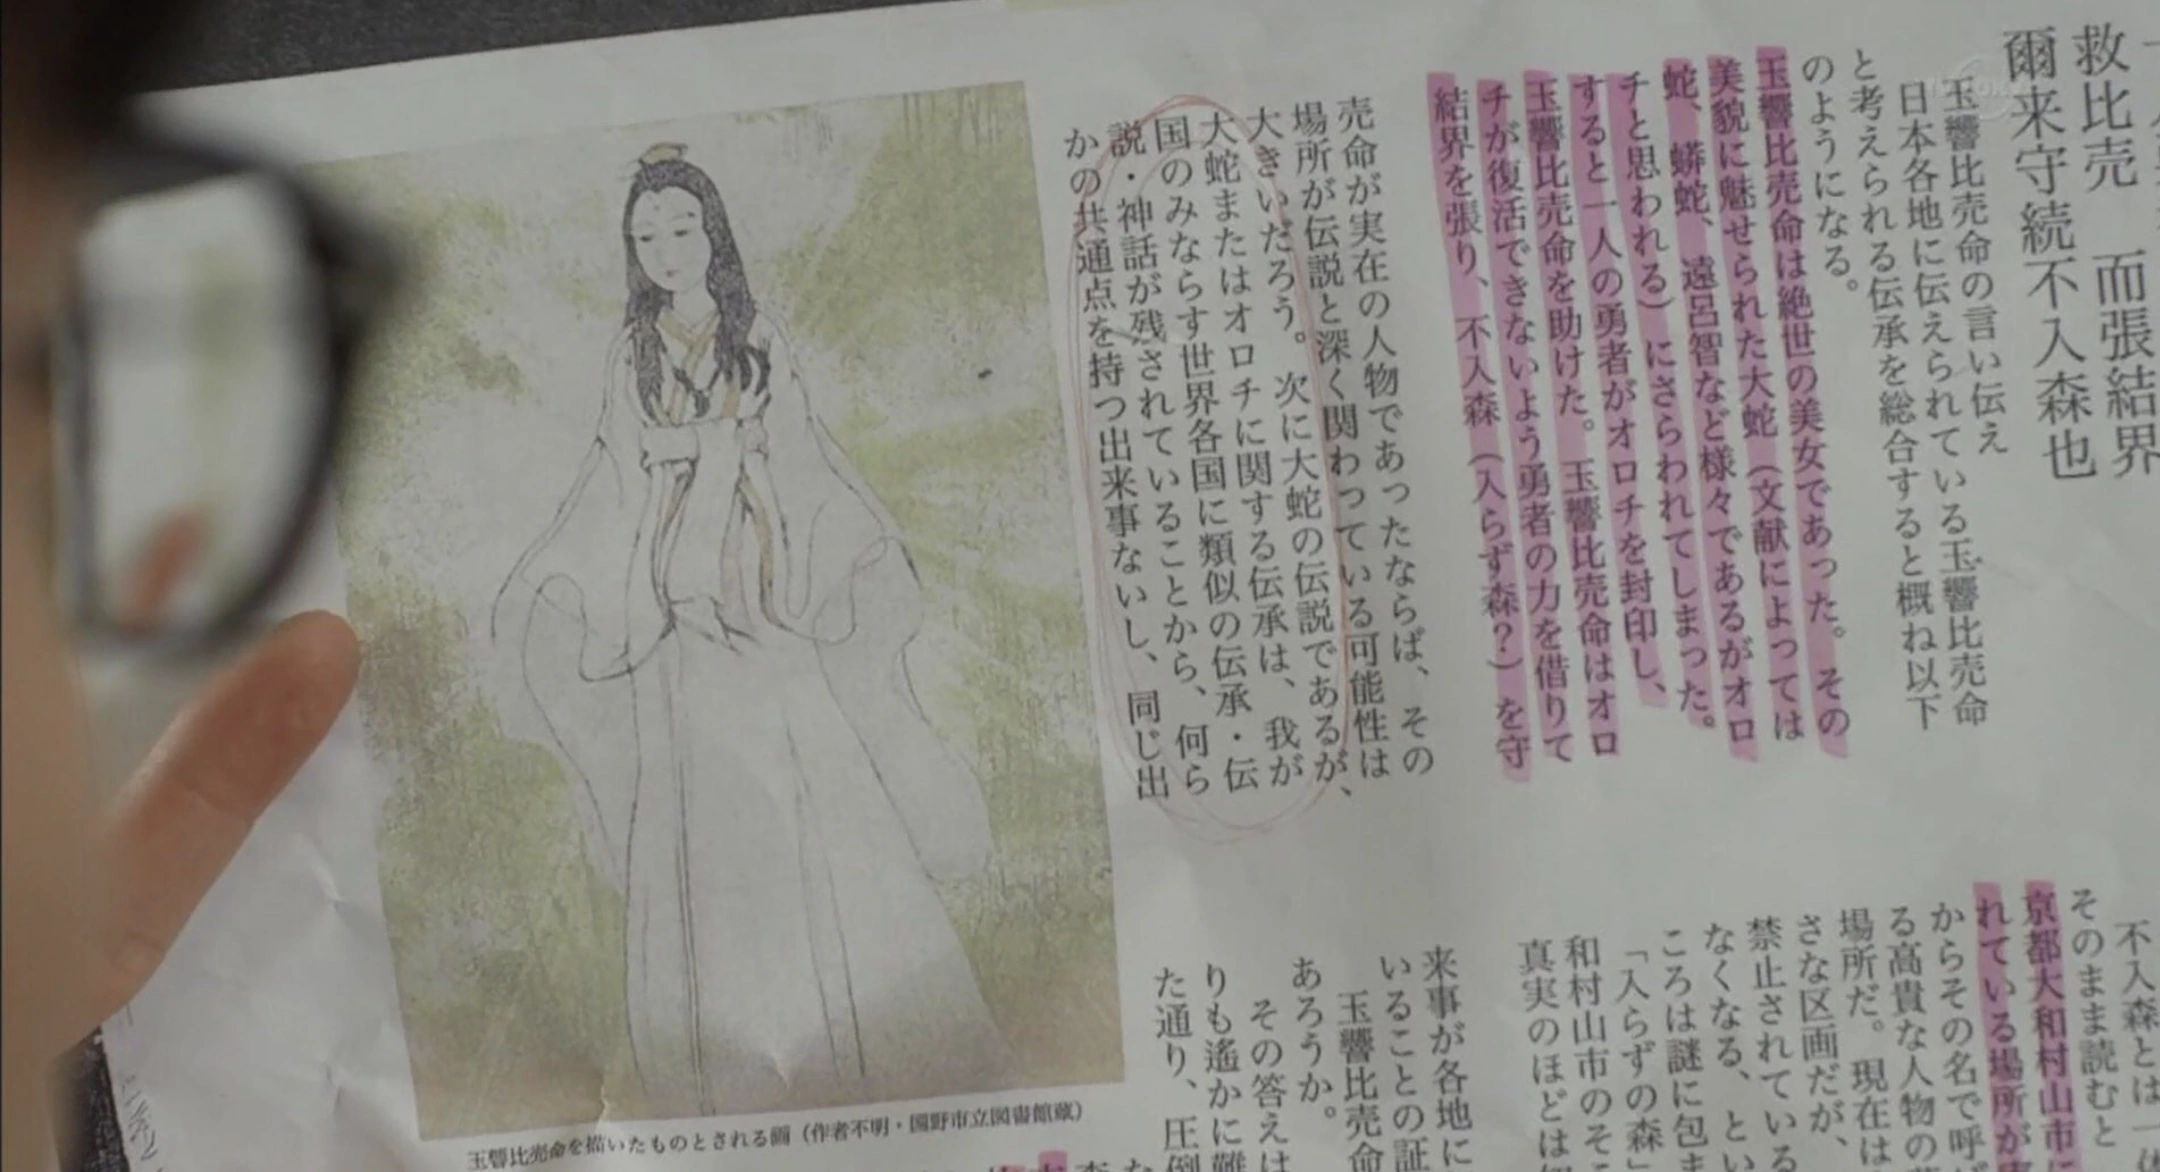 救比売　而張結界
爾来守続不入森也
玉響比売命の言い伝え
日本各地に伝えられている玉響比売命
と考えられる伝承を総合すると概ね以下
のようになる。
玉響比売命は絶世の美女であった。その
美貌に魅せられた大蛇（文献によっては
蛇、蟒蛇、遠呂智など様々であるがオロ
チと思われる）にさらわれてしまった。
すると一人の勇者がオロチを封印し、
玉響比売命を助けた。玉響比売命はオロ
チが復活できないよう勇者の力を借りて
結界を張り、不入森（入らず森？）を守
売命が実在の人物であったならば、その
場所が伝説と深く関わっている可能性は
大きいだろう。次に大蛇の伝説であるが、
大蛇またはオロチに関する伝承は、我が
国のみならず世界各国に類似の伝承・伝
説・神話が残されていることから、何ら
かの共通点を持つ出来事ないし、同じ出
不入森とは一
そのまま読むと
京都大和村山市
れている場所が
からその名で呼
る高貴な人物の
場所だ。現在は
さな区画だが、
禁止されている
なくなる、とい
ころは謎に包ま
「入らずの森」
和村山市のそこ
真実のほどは
来事が各地に
いることの証
玉響比売命
あろうか。
その答えは
りも遙かに難
た通り、圧倒
玉響比売命を描いたものとされる画（作者不明・園野市立図書館蔵）